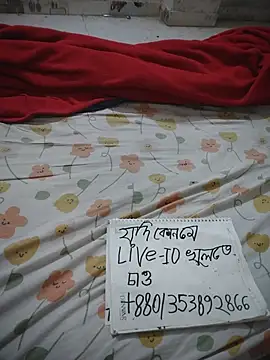 যদি কেউ
LIVE-ID খুলতে
চাও
+8801353892866